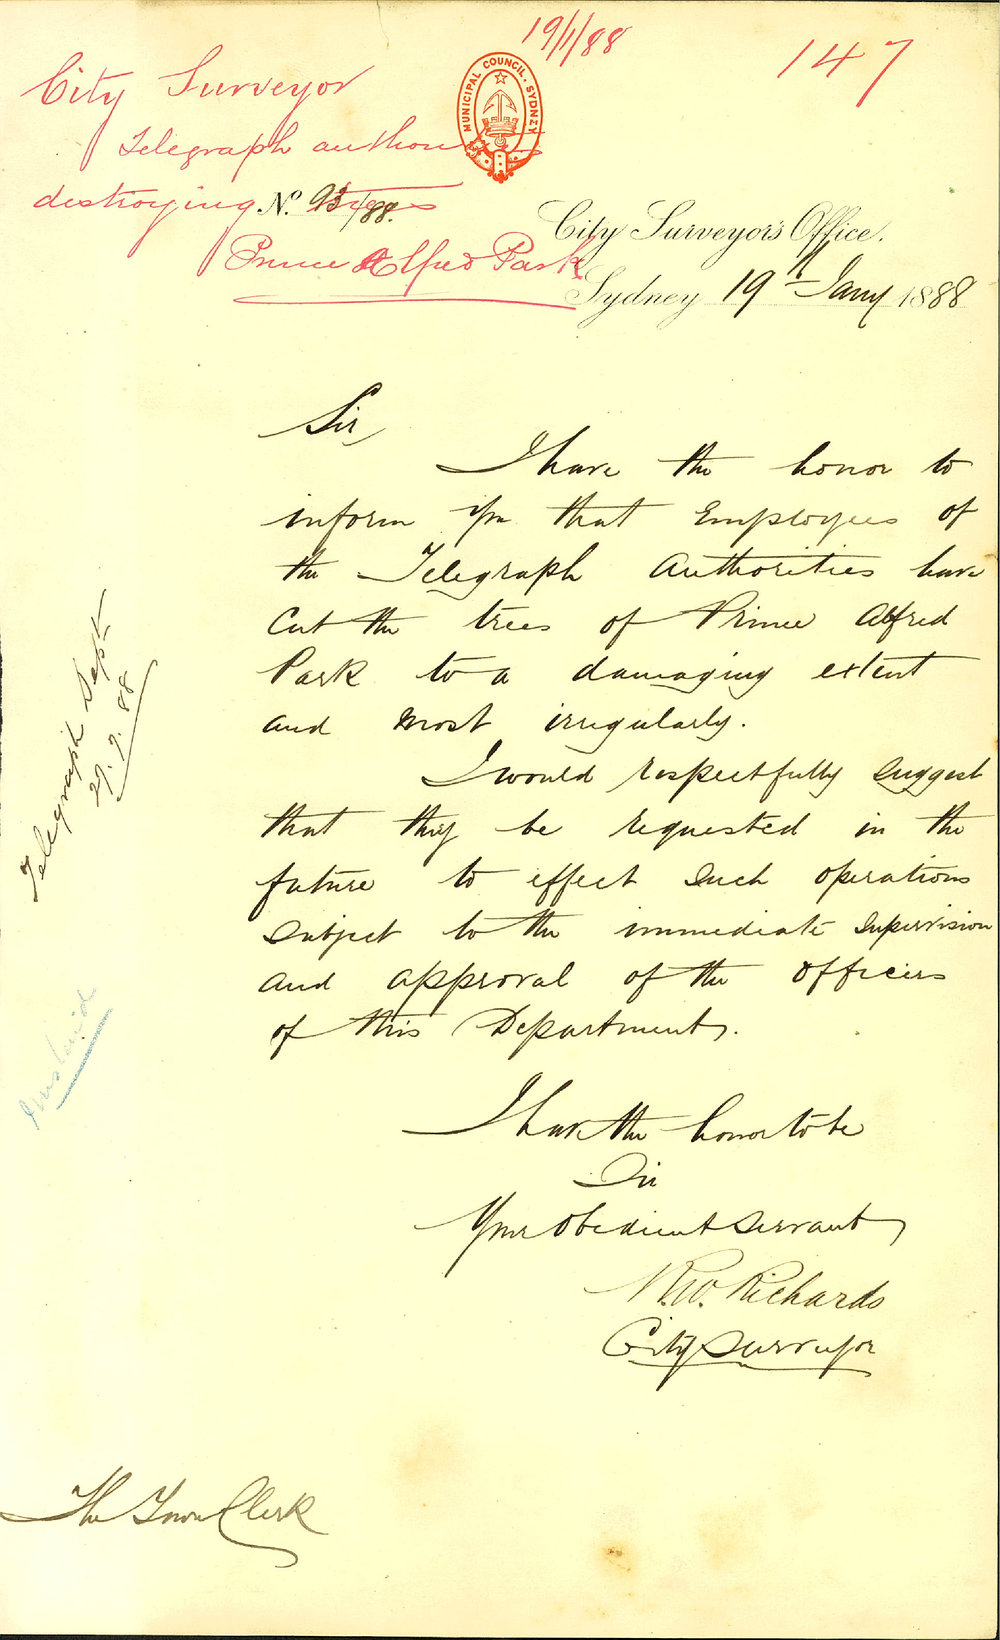 19/1/88
147
City Surveyor
Telegraph
destroying trees
Prince Alfred Park
MUNICIPAL COUNCIL. SYDNEY
No. 93/88.
City Surveyor's Office.
Sydney 19th Jany 1888
Sir,
I have the honor to
inform you that Employees of
the Telegraph Authorities have
cut the trees of Prince Alfred
Park to a damaging extent
and most irregularly.
I would respectfully suggest
that they be requested in the
future to effect such operations
subject to the immediate supervision
and approval of the officers
of this Department.
I have the honor to be
Sir
Your Obedient Servant,
R.W. Richards
City Surveyor
Telegraph Dept
88
The Town Clerk